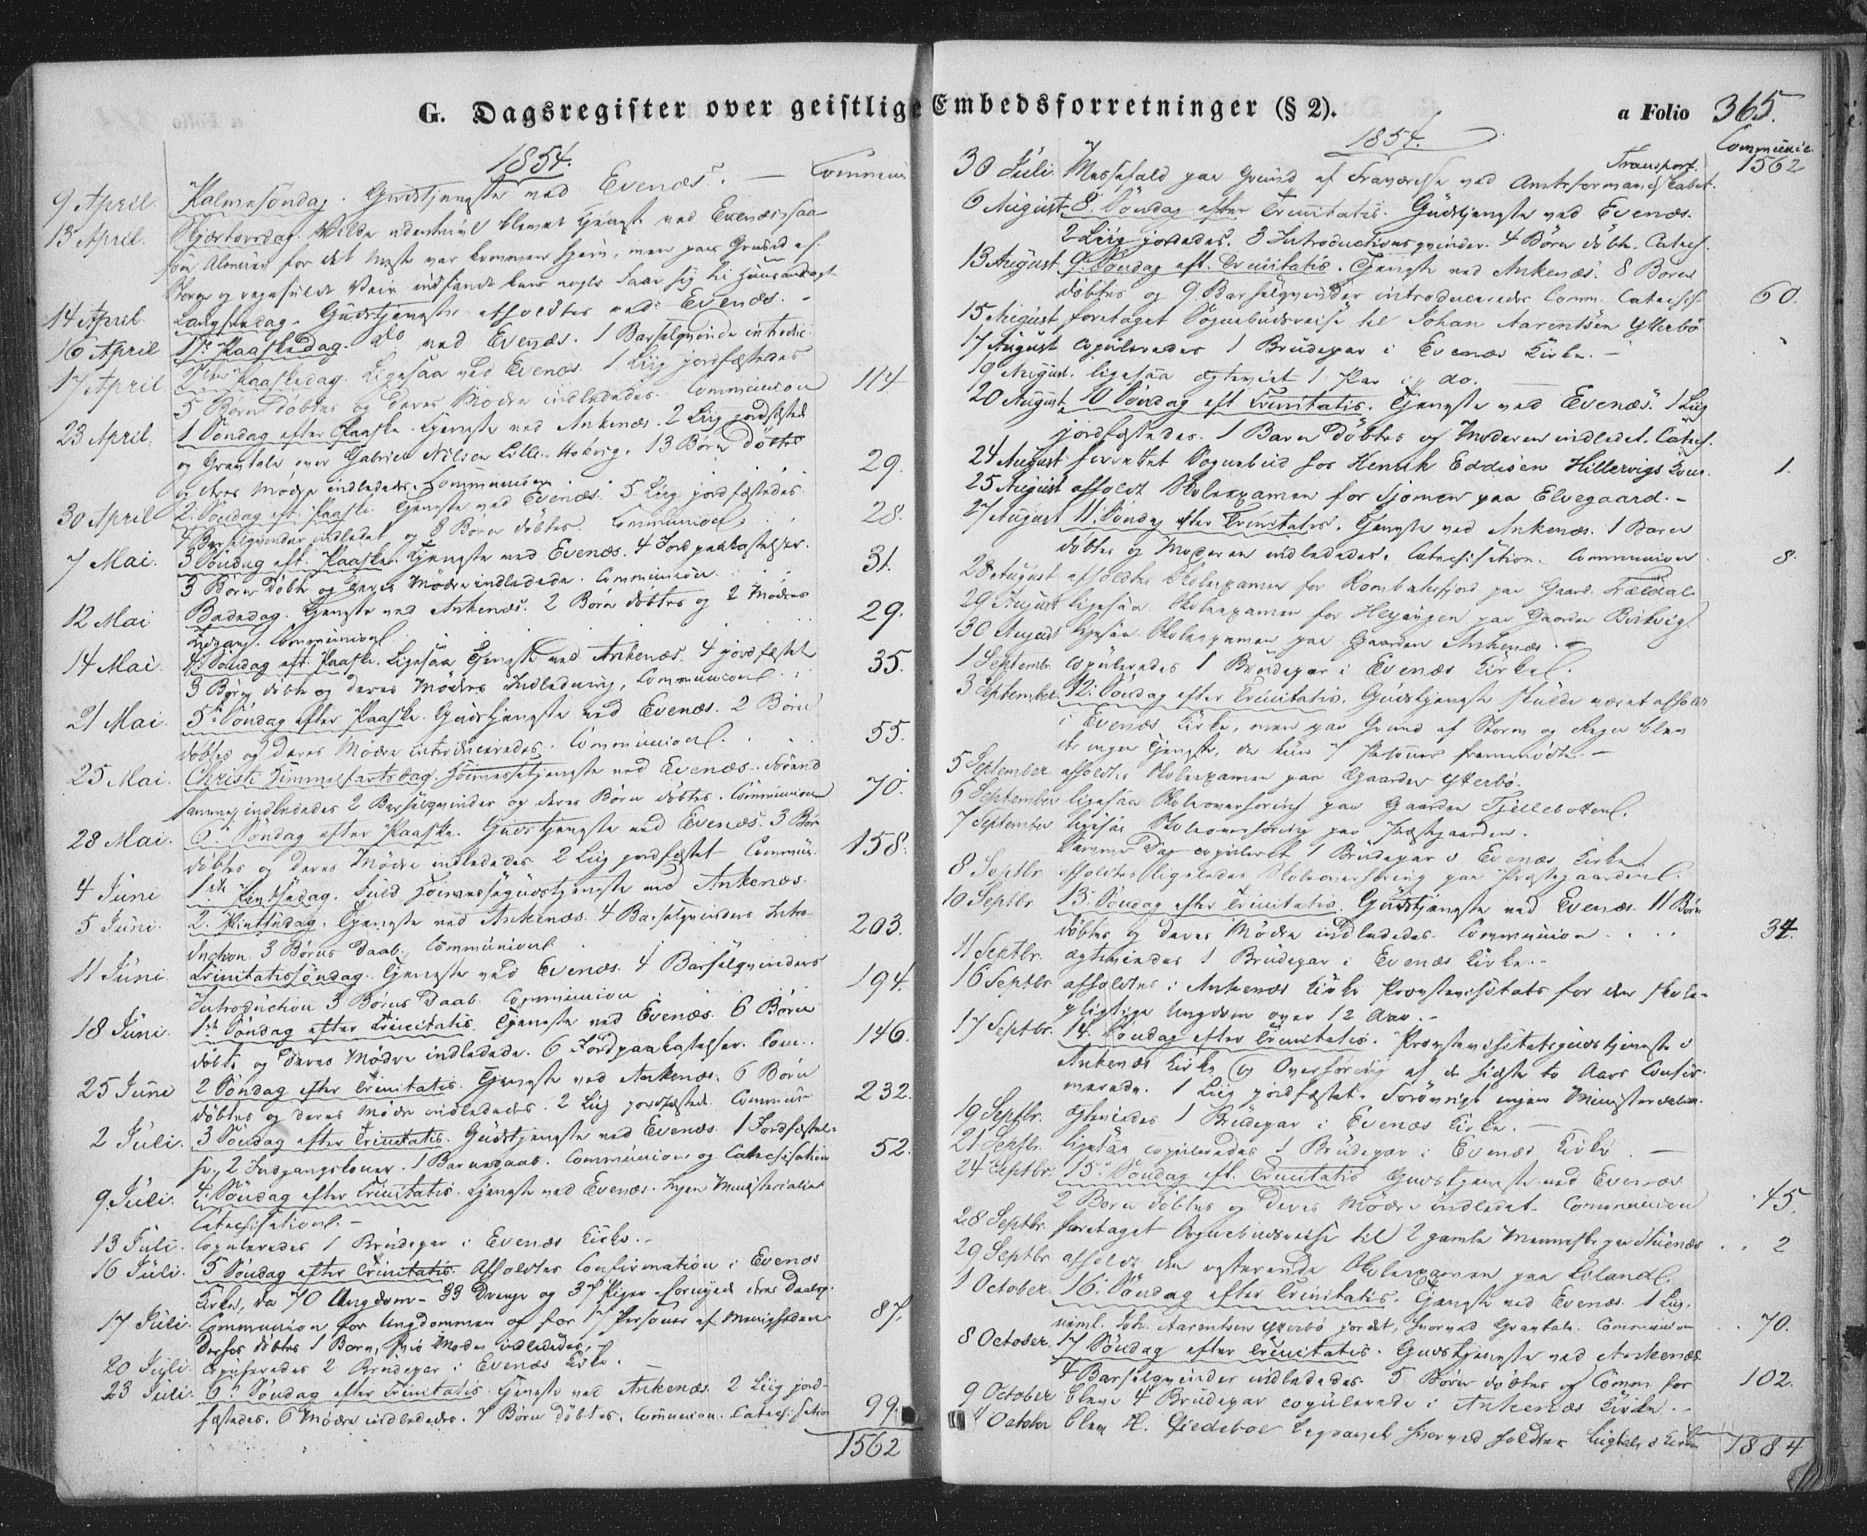 G. Dagsregister over geistlige Embedsforretninger (§ 2).
a Folio 365.
1854.
Commun
9 April. Palmesöndag. Gudstjeneste ved Evenæs. —
13 April. Skjærtorsdag. Vilde ventelig blevet Tjeneste ved Evenæs, saa
som Almuen for det meste var kommen hjem, men paa Grund af
Storm og regnfuldt Veir indfandt kun nogle Faa sig til Huusandagt
14 April. Langfredag. Gudstjeneste afholdtes ved Evenæs. —
16 April 1ste Paaskedag. do ved Evenæs. 1 Barselqvinde introduc.
17 April 2den Paaskedag. Ligesaa ved Evenæs. 1 Liig jordfæstedes
5 Börn döbtes og deres Mödre indledede. Communion 114.
23 April. 1 Söndag efter Paaske. Tjeneste ved Ankenæs. 2 Liig jordfæstede
og Gravtale over Gabriel Nilsen Lille-Hobvig. 13 Börn döbte
og deres Mödre indledede. Communion 29.
30 April 2. Söndag eft. Paaske. Tjeneste ved Evenæs. 5 Liig jordfæstedes.
4 Barselqvinder indledet og 8 Börn döbtes. Communion 28.
7 Mai. 3 Söndag eft. Paaske. Tjeneste ved Evenæs. 4 Jordpaakastelser.
3 Börn Döbte og deres Mödre indledede. Communion 31.
12 Mai Bededag. Tjeneste ved Ankenæs. 2 Börn döbtes og 2 Mödres
Indgang. Communion 29.
14 Mai. 4. Söndag eft. Paaske. Ligesaa Tjeneste ved Ankenæs. 4 jordfæstet
3 Börn döbte og deres Mödres Indledning, Communion 35.
21 Mai 5te Söndag efter Paaske. Gudstjeneste ved Evenæs. 2 Börn
döbtes og deres Mödre introduceredes. Communion 55.
25 Mai. Christi Himmelfartsdag. Höimessetjeneste ved Evenæs.
indledede 2 Barselqvinder og deres Börn döbtes. Communion 70.
28 Mai. 6te Söndag efter Paaske. Gudstjeneste ved Evenæs. 3 Börn
döbtes og deres Mödre indledede. 2 Liig jordfæstet Commun. 158.
4 Juni 1ste Pintsedag. Fuld Höimessegudstjeneste ved Ankenæs.
5 Juni. 2. Pintsedag. Tjeneste ved Ankenæs. 4 Barselqvinders Intro-
duction. 3 Börns Daab. Communion 203.
11 Juni. Trinitatissöndag. Tjeneste ved Evenæs. 4 Barselqvinders
Introduction 3 Börns Daab. Communion 194.
18 Juni. 1ste Söndag efter Trinitatis. Tjeneste ved Evenæs. 6 Börn
döbte og deres Mödre indledede. 6 Jordpaakastelser. Com. 146.
25 Juni 2 Söndag efter Trinitatis. Tjeneste ved Ankenæs. 6 Börn
döbtes og deres Mödre indledede. 2 Liig jordfæstede Commun 232.
2 Juli. 3 Söndag efter Trinitatis. Gudstjeneste ved Evenæs 1 Jordfæstel-
se, 2 Indgangskoner. 1 Barnedaab. Communion og Catechisation 52.
9 Juli. 4. Söndag efter Trinitatis. Tjeneste ved Evenæs. Ingen Ministerialia
Catechisation. —
13 Juli. Copuleredes 1 Brudepar i Evenæs Kirke. —
16 Juli. 5 Söndag efter Trinitatis. Afholdtes Confirmation i Evenæs
Kirke, da 70 Ungdom - 33 Drenge og 37 Piger - fornyede deres Daabsp.
17 Juli. Communion for Ungdommen og for 17 Personer af Menigheden 87.
Derfor döbtes 1 Barn, hvis Moder indledede.
20 Juli. Copuleredes 2 Brudepar i Evenæs Kirke. —
23 Juli. 6te Söndag efter Trinitatis. Tjeneste ved Ankenæs. 2 Liig jord-
fæstedes. 6 Mödre indledede. 7 Börn döbtes. Communion. Catechisation 99.
1562
1854.
Communic.
Transport. 1562
30 Juli. Messefald paa Grund af Fraværelse ved Amtsformandskabet.
6 August. 8. Söndag efter Trinitatis. Gudstjeneste ved Evenæs.
2 Liig jordedes. 3 Introductionsqvinder. 4 Börn döbte. Catech.
13 August. 9. Söndag eft. Trinitatis. Tjeneste ved Ankenæs. 8 Börn
döbtes og 9 Barselqvinder introduceredes Comm. Catechis. 60.
15 August foretaget Sognebudsreise til Johan Aarentsen Ytterbö
17 August copuleredes 1 Brudepar i Evenæs Kirke. —
19 August. ligesaa ægteviet 1 Par i do. —
20 August. 10 Söndag eft Trinitatis. Tjeneste ved Evenæs. 1 Liig
jordfæstedes. 1 Barn Döbtes og Moderen indledet. Catech.
24 August forrettet Sognebud hos Henrik Eddisen Hillervigs Kone. 1.
25 August afholdt Skoleexamen for Sjomen paa Elvegaard. —
27 August 11. Söndag efter Trinitatis. Tjeneste ved Ankenæs. 1 Barn
döbtes og Moderen indledede. Catechisation. Communion 8.
28 August afholdtes Skoleexamen for Rombaksfjord paa Gaard. Trældal.
29 August ligesaa Skoleexamen for Herjangen paa Gaarden Birkvig.
30 August ligesaa Skoleexamen paa Gaarden Ankenæs. —
1 Septembr. copuleredes 1 Brudepar i Evenæs Kirke.
3 September. 12. Söndag efter Trinitatis. Gudstjeneste skulde været afholdt
i Evenæs Kirke, men paa Grund af Storm og Regn blev
der ingen Tjeneste, da kun 7 Personer fremmödte. —
5 September afholdtes Skoleexamen paa Gaarden Ytterbö.
6 September ligesaa Skoleoverhöring paa Gaarden Fjelleboten.
7 September ligesaa Skoleoverhöring paa Præstgaarden.
samme Dag copuleret 1 Brudepar i Evenæs Kirke.
8 Septbr. afholdtes ligeledes Skoleoverhöring paa Præstegaarden.
10 Septbr 13. Söndag efter Trinitatis. Gudstjeneste ved Evenæs. 11 Börn
döbtes og deres Mödre indledede. Communion 34.
11 Septbr. ægteviedes 1 Brudepar i Evenæs Kirke. —
16 Septbr afholdtes i Ankenæs Kirke Provstevisitats for den skole-
pligtige Ungdom over 12 Aar. —
17 Septbr. 14. Söndag efter Trinitatis. Provstevisitatsgudstjeneste i
Ankenæs Kirke og Overhöring af de sidste to Aars Confir-
merede. 1 Liig jordfæstet. Forövrigt ingen Ministerialia.
19 Septbr. ægteviedes 1 Brudepar i Evenæs Kirke. —
21 Septbr. ligesaa copuleredes 1 Brudepar i Evenæs Kirke. —
24 Septbr. 15. Söndag eft. Trinitatis Gudstjeneste ved Evenæs.
2 Börn döbtes og deres Mödre indledet. Communion 45.
28 Septbr. foretaget Sognebudsreise til 2 gamle Mennesker paa 2
29 Septbr afholdt den resterende Skoleexamen paa Liland.
1 October. 16. Söndag efter Trinitatis. Tjeneste ved Evenæs. 1 Liig,
neml. Joh. Aarentsen Ytterbö jordet, hvorved Gravtale. Communion 70.
8 October. 17 Söndag efter Trinitatis. Gudstjeneste ved Ankenæs
4 Barselqvinder indledede 5 Börn döbtes og Comm. for 102.
9 October bleve 4 Brudepar copulerede i Ankenæs Kirke. —
11 October blev H. begravet hvorved holdtes Liigtale i Kirken
1884